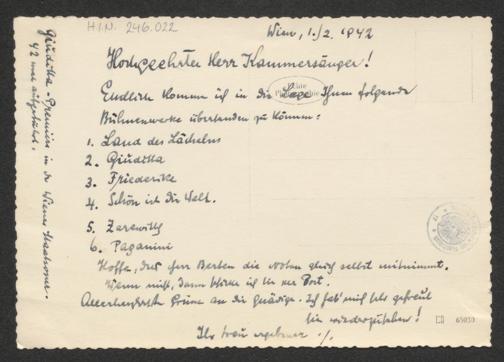 H.I.N. 246.022
Wien, 1./2. 1942
Hochgeehrter Herr Kammersänger!
Endlich komme ich in die Lage Ihnen folgende
Bühnenwerke übersenden zu können:
1. Land des Lächelns
2. Giuditta
3. Friederike
4. Schön ist die Welt.
5. Zarewitsch
6. Paganini
Hoffe, dass Herr Berten die Noten gleich selbst mitnimmt.
Wenn nicht, dann schicke ich sie per Post.
Allerherzlichste Grüsse an die Gnädige. Ich hab' mich sehr gefreut
Sie wiederzusehen!
Ihr treu ergebener
Giuditta-Premiere in der Wiener Staatsoper.
42 mal aufgeführt.
65030